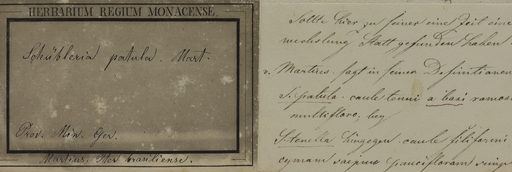 HERBARIUM REGIUM MONACENSE.
Schübleria patula. Mart.
Prov. Min. Ger.
Martius. Iter brasiliense.
Sollte hier zu seiner eine Zeit eine
wechslung Statt gefunden haben
v. Martius sagt in seinen Definitionen
S. patula. caule tenui a basi ramoso
multifloro, bey
S. tenella hingegen caule filiformi
cymam paucifloram